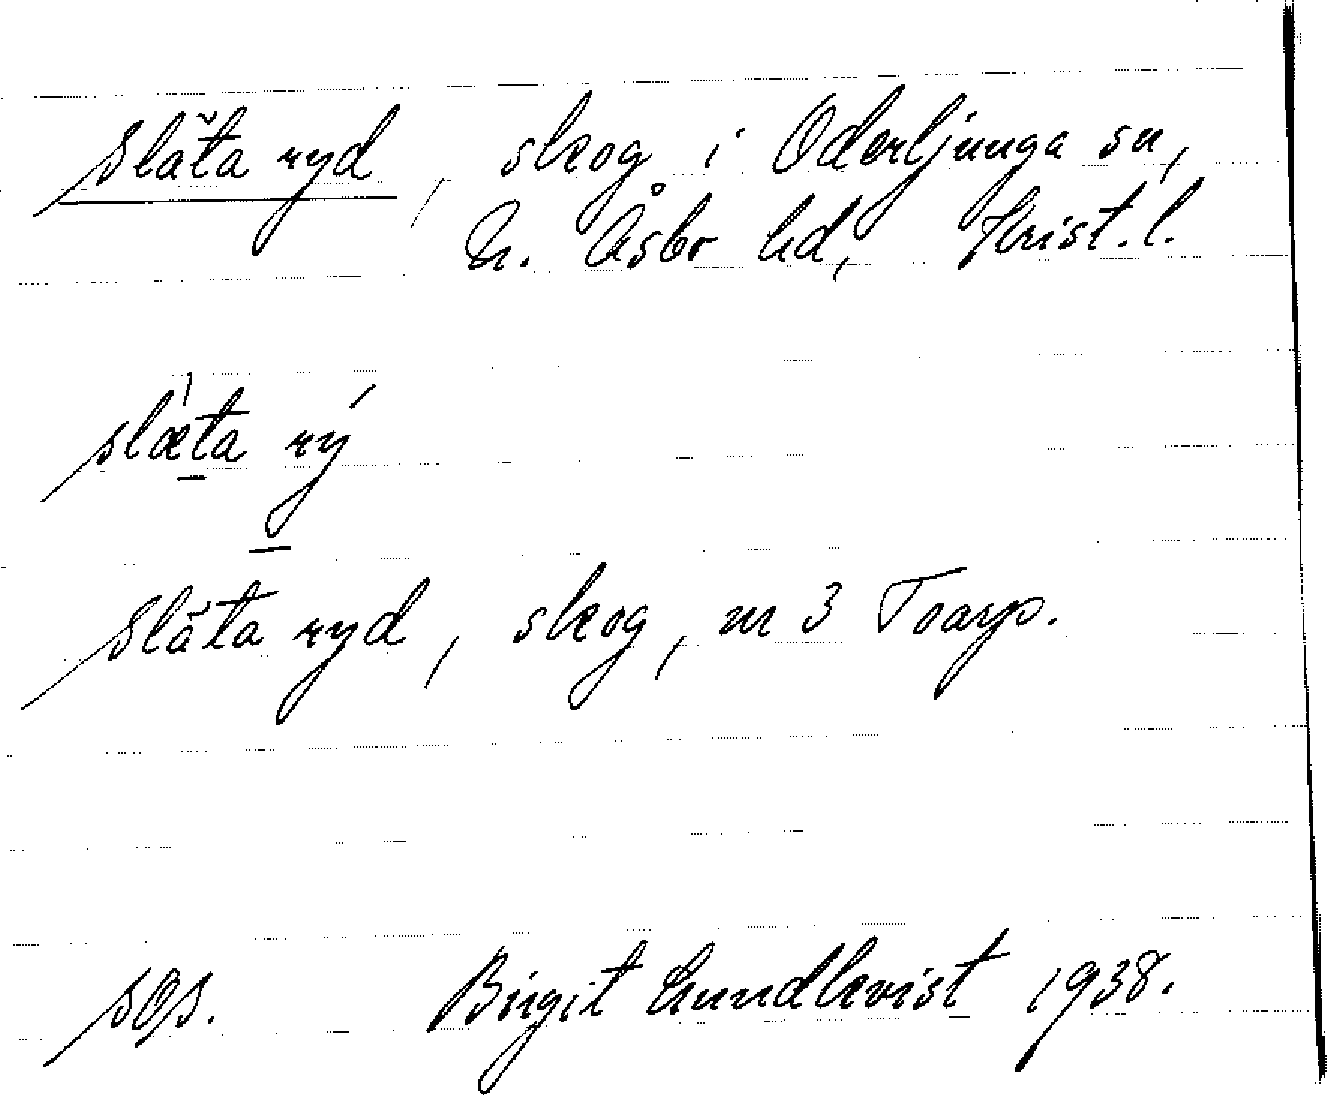 Släta ryd, skog i Oderljunga sn,
N. Åsbo hd, Krist. l.
slæ̀ta rý
Släta ryd, skog, nr 3 Toarp.
sgs. Birgit Lundkvist 1938.